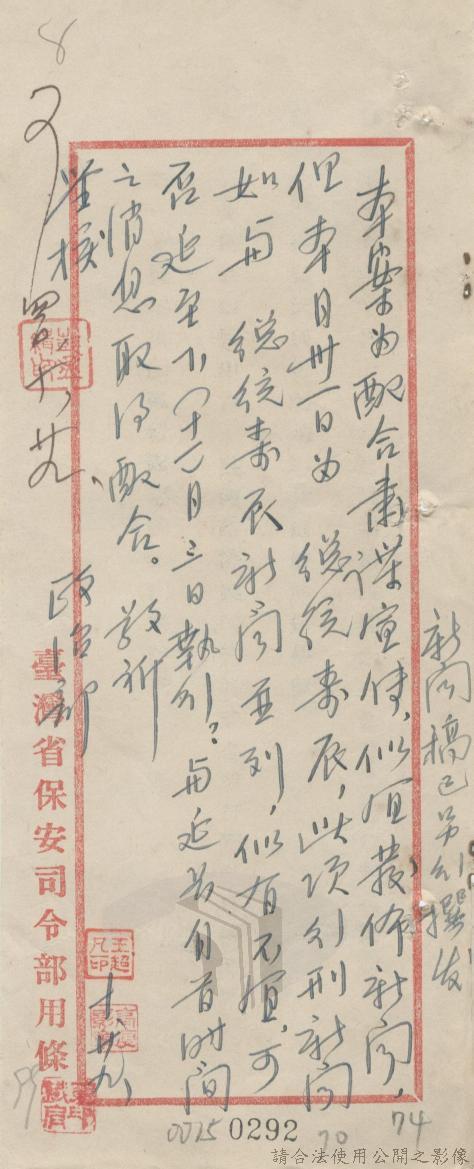 新聞稿已另行撰發
本案為配合肅諜宣傳，似宜發佈新聞，
但本月卅一日為 總統壽辰，此項行刑新聞
如與 總統壽辰新聞並列，似有不宜，可
否延至下(十一)月三日執行？與延長自首時間
之消息取得配合。敬祈
核
政治部
十、廿九、
臺灣省保安司令部用條
王超凡印
8
十、廿九
0292
70
74
請合法使用公開之影像